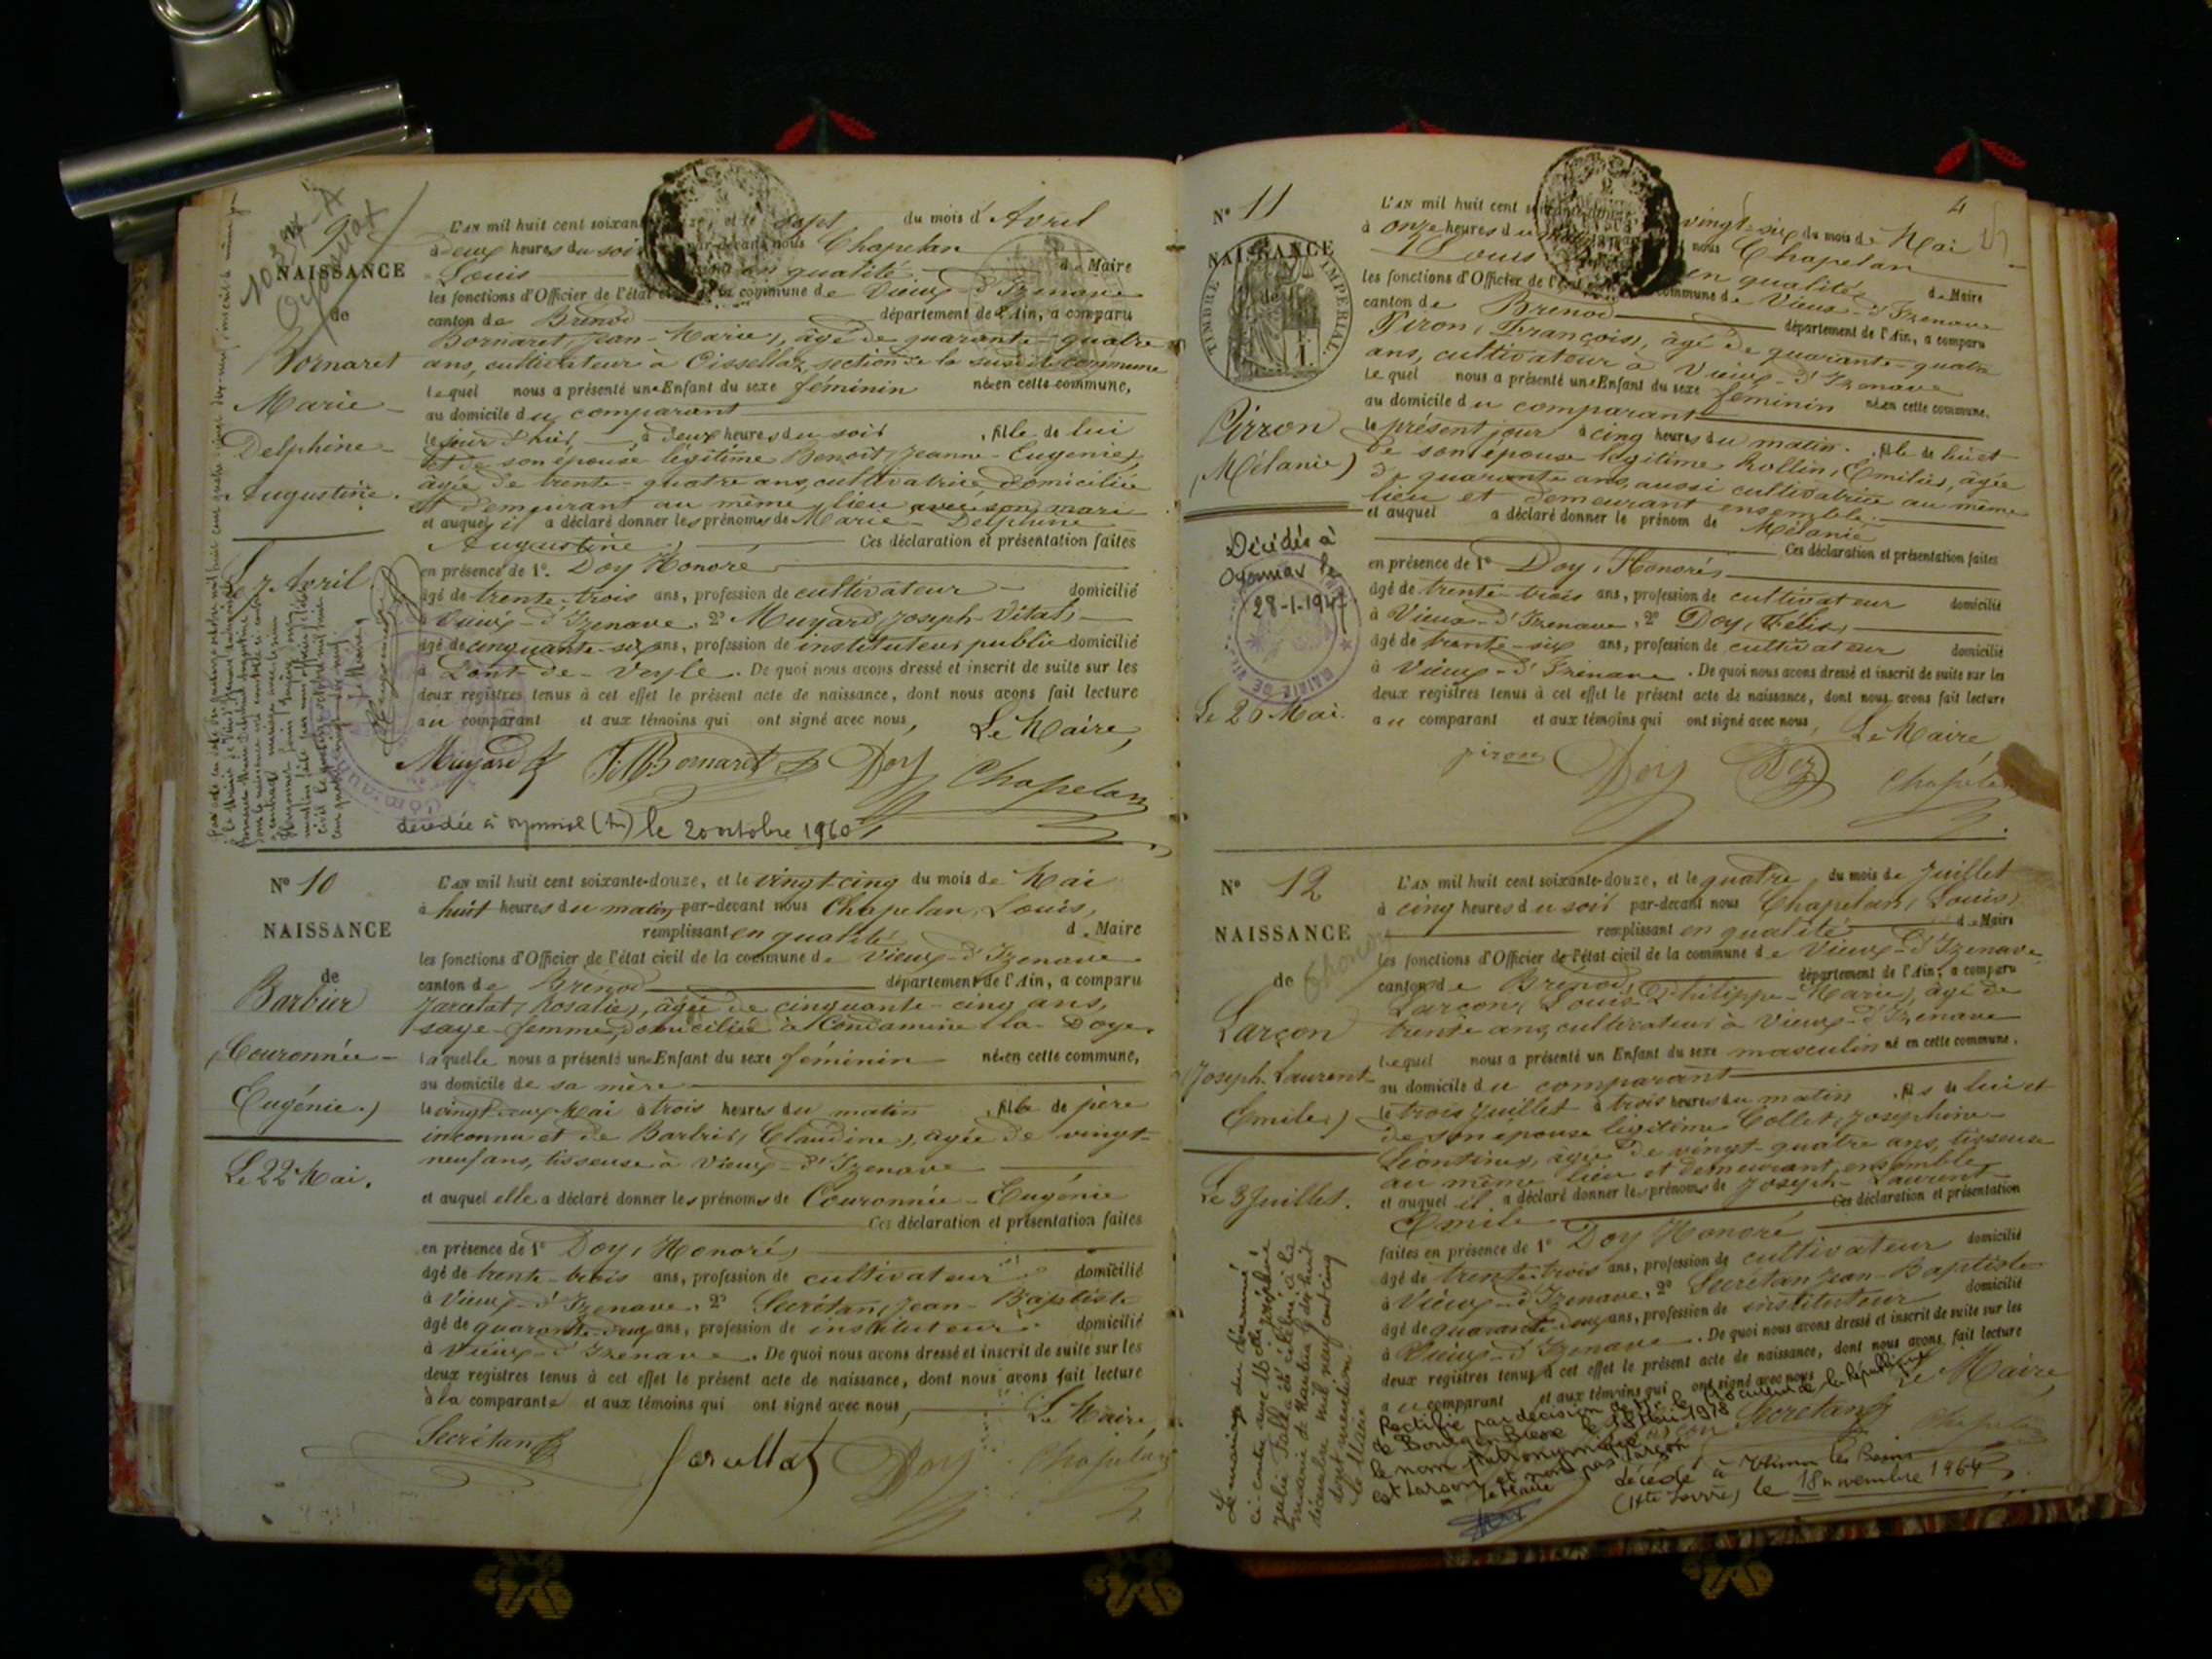 9
NAISSANCE
de
Bornaret
Marie-
Delphine-
Augustine.
Le 7 Avril
L'AN mil huit cent soixante-douze, et le sept du mois d'Avril
à deux heures du soir par-devant nous Chapelan
Louis en qualité de Maire
les fonctions d'Officier de l'état civil de la commune de Vieux-d'Izenave
canton de Brénod département de l'Ain, a comparu
Bornaret, Jean-Marie, âgé de quarante-quatre
ans, cultivateur à Oissellaz, section de la susdite commune
lequel nous a présenté une Enfant du sexe féminin née en cette commune,
au domicile du comparant
le jour d'hui, à deux heures du soir, fille de lui
et de son épouse légitime Benoit, Jeanne-Eugénie,
âgée de trente-quatre ans, cultivatrice domiciliée
et demeurant au même lieu avec son mari
et auquel il a déclaré donner les prénoms de Marie-Delphine
Augustine) Ces déclaration et présentation faites
en présence de 1°. Doy Honoré
âgé de trente-trois ans, profession de cultivateur domicilié
Vieux-d'Izenave, 2° Muyard, Joseph-Vital,
âgé de cinquante-six ans, profession de instituteur public domicilié
à Pont-de-Veyle. De quoi nous avons dressé et inscrit de suite sur les
deux registres tenus à cet effet le présent acte de naissance, dont nous avons fait lecture
au comparant et aux témoins qui ont signé avec nous,
Le Maire,
Muyard JMBornaret Doy Chapelan
décédée à Oyonnax (Ain) le 20 octobre 1960
N° 10
NAISSANCE
de
Barbier
(Couronnée-
Eugénie.)
Le 22 Mai.
L'AN mil huit cent soixante-douze, et le vingt-cinq du mois de Mai
à huit heures du matin par-devant nous Chapelan, Louis,
remplissant en qualité de Maire
les fonctions d'Officier de l'état civil de la commune de Vieux-d'Izenave
canton de Brénod département de l'Ain, a comparu
Jarcelat, Rosalie), âgée de cinquante-cinq ans,
sage-femme, domiciliée à Condamine la Doye.
laquelle nous a présenté une Enfant du sexe féminin née en cette commune,
au domicile de sa mère
le vingt-deux Mai à trois heures du matin, fille de père
inconnu et de Barbier, Claudine), âgée de vingt-
neuf ans, tisseuse à Vieux-d'Izenave
et auquel elle a déclaré donner les prénoms de Couronnée-Eugénie
Ces déclaration et présentation faites
en présence de 1° Doy, Honoré,
âgé de trente-trois ans, profession de cultivateur domicilié
à Vieux-d'Izenave, 2° Secrétan, Jean-Baptiste
âgé de quarante-deux ans, profession de instituteur domicilié
à Vieux-d'Izenave. De quoi nous avons dressé et inscrit de suite sur les
deux registres tenus à cet effet le présent acte de naissance, dont nous avons fait lecture
à la comparante et aux témoins qui ont signé avec nous,
Le Maire,
Secrétan Doy Chapelan
4
N° 11
NAISSANCE
de
TIMBRE IMPERIAL.
Pirron
(Mélanie)
Décédée à
Oyonnax le
Le 26 Mai.
L'AN mil huit cent soixante-douze, vingt-six du mois de Mai
à onze heures du nous Chapelan
Louis en qualité de Maire
les fonctions d'Officier de l'état commune de Vieux-d'Izenave
canton de Brénod département de l'Ain, a comparu
Piron, François), âgé de quarante-quatre
ans, cultivateur à Vieux-d'Izenave
lequel nous a présenté une Enfant du sexe féminin née en cette commune.
au domicile du comparant
le présent jour à cinq heures du matin, fille de lui et
de son épouse légitime Rollin, Emilie, âgée
de quarante ans, aussi cultivatrice au même
lieu et demeurant ensemble.
et auquel a déclaré donner le prénom de Mélanie
Ces déclaration et présentation faites
en présence de 1° Doy, Honoré,
âgé de trente-trois ans, profession de cultivateur domicilié
à Vieux-d'Izenave, 2° Doy, Félix,
âgé de trente-six ans, profession de cultivateur domicilié
à Vieux-d'Izenave. De quoi nous avons dressé et inscrit de suite sur les
deux registres tenus à cet effet le présent acte de naissance, dont nous avons fait lecture
au comparant et aux témoins qui ont signé avec nous,
Le Maire,
piron Doy Doy Chapelan
N° 12
NAISSANCE
de
Larçon
(Joseph-Laurent
Emile)
Le 3 Juillet.
L'AN mil huit cent soixante-douze, et le quatre du mois de Juillet
à cinq heures du soir par-devant nous Chapelan, Louis,
remplissant en qualité de Maire
les fonctions d'Officier de l'état civil de la commune de Vieux-d'Izenave
canton de Brénod, département de l'Ain, a comparu
Larçon, Louis-Philippe-Marie), âgé de
trente ans, cultivateur à Vieux-d'Izenave
lequel nous a présenté un Enfant du sexe masculin né en cette commune,
au domicile du comparant
le trois Juillet à trois heures du matin, fils de lui et
de son épouse légitime Collet, Joséphine-
Léontine), âgée de vingt-quatre ans, tisseuse
au même lieu et demeurant ensemble
et auquel il a déclaré donner les prénoms de Joseph-Laurent
Emile Ces déclaration et présentation
faites en présence de 1° Doy Honoré
âgé de trente-trois ans, profession de cultivateur domicilié
à Vieux-d'Izenave, 2° Secrétan Jean-Baptiste
âgé de quarante-deux ans, profession de instituteur domicilié
à Vieux-d'Izenave. De quoi nous avons dressé et inscrit de suite sur les
deux registres tenus à cet effet le présent acte de naissance, dont nous avons fait lecture
au comparant et aux témoins qui ont signé avec nous
Le Maire,
Secrétan Chapelan
Rectifié par décision de Mr le Procureur de la République
de Bourg en Bresse le 18 Mai 1978
le nom patronymique
est Larson et non pas Larçon
le Maire
décédé à Thonon les Bains
(Hte Savoie) le 18 novembre 1964
Le mariage du dénommé
ci-contre avec Melle Joséphine
Julie a été célébré à la
mairie de Nantua le dix huit
décembre mil neuf cent cinq
dont mention.
Le Maire